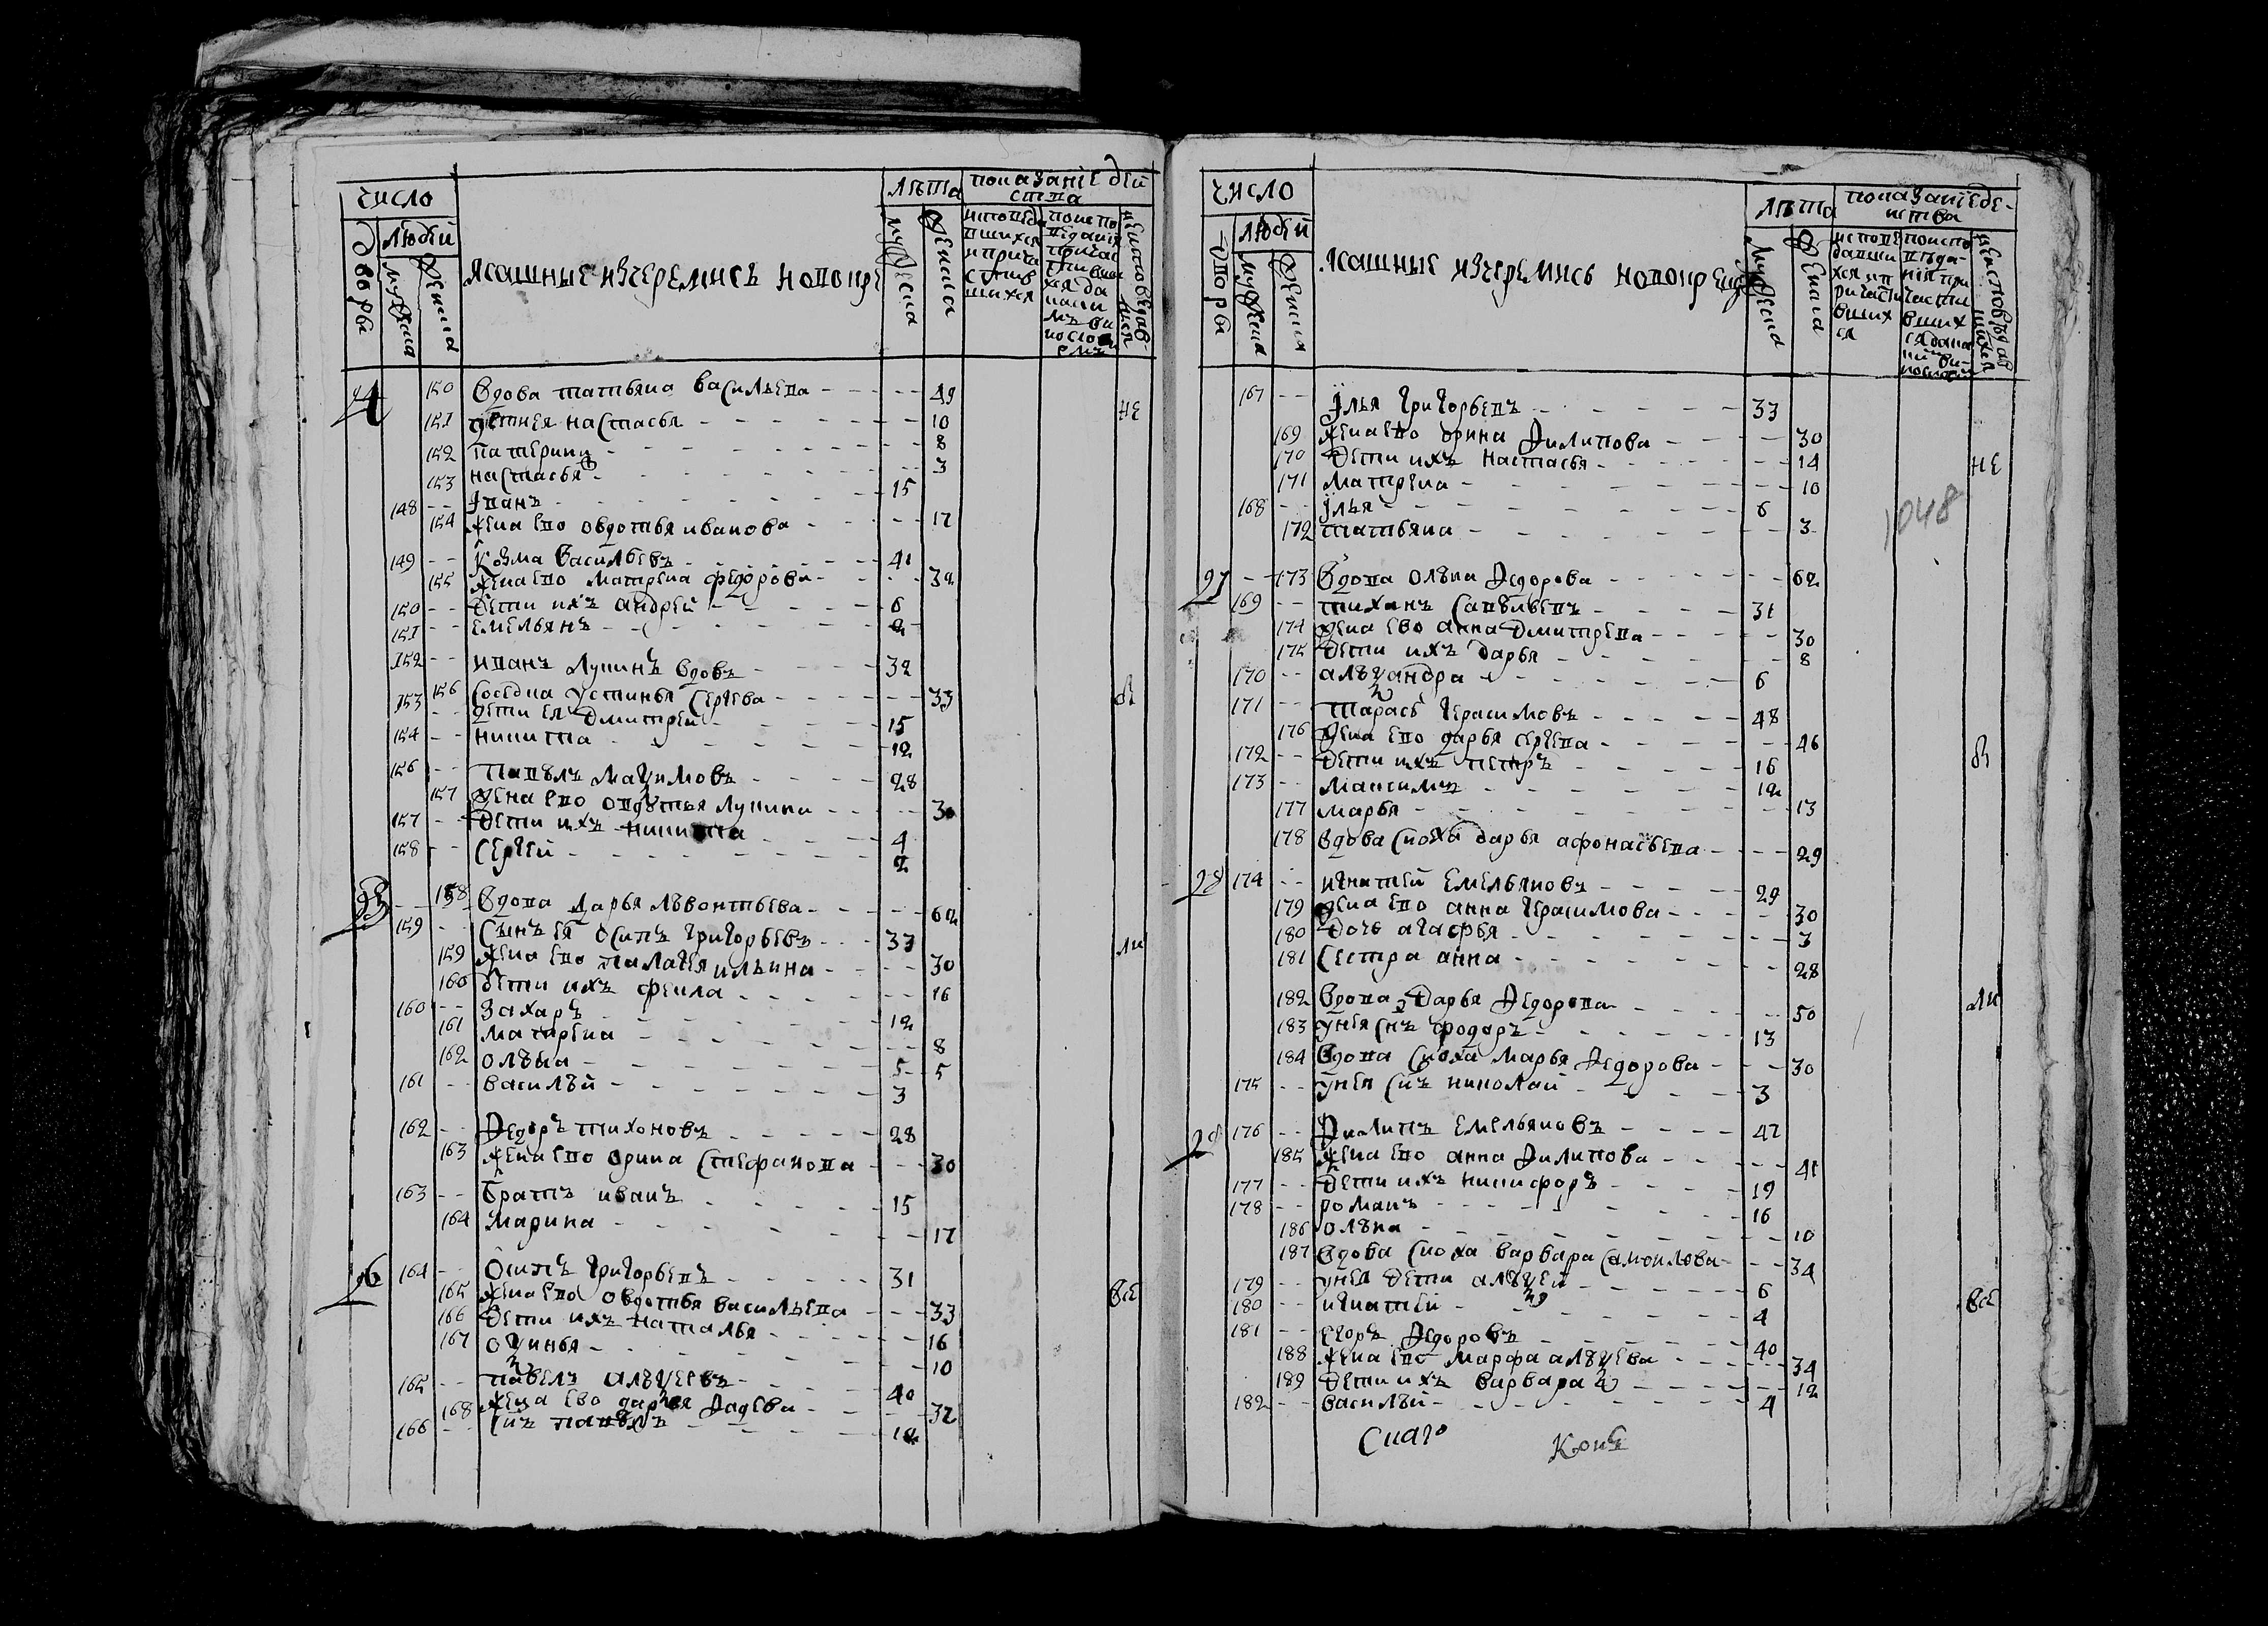 число
лѣта
показаніе дей
ства
дворы
людей
мужеска
женска
ясашные изчеремисъ новокре
мужеска
женска
исповеда
вшихся
и прича
стив
шихся
по испо
веданія
причас
не исповедав
шися
24 150 вдова татьяна васильева 49
151 дети ея настасья 10
152 катерина 8
153 настасья 3
148 иванъ 15
154 жена ево овдотья иванова 17
149 козма васильевъ 41
155 жена ево матрена федорова 32
150 дети ихъ андрей 6
151 емельянъ 2
152 иванъ лукинъ вдовъ 32
156 соседка устинья сергева 33
153 дети ея дмитрей 15
154 никита 12
156 павелъ максимовъ 28
157 жена ево овдотья лукина 30
157 дети ихъ никита 4
158 сергей 2
158 вдова дарья лѣвонтьева 62
159 сынъ ея осипъ григорьевъ 37
159 жена ево палагея ильина 30
160 дети ихъ фекла 16
160 захаръ 12
161 матрена 8
162 олѣна 5 5
161 василѣй 3
162 федоръ тихоновъ 28
163 жена ево орина стефанова 30
163 братъ иванъ 15
164 марина 17
26 164 осипъ григорьевъ 31
165 жена ево овдотья васильева 33
166 дети ихъ наталья 16
167 оксинья 10
165 павелъ алѣксеевъ 40
168 жена ево дарья фадева 32
166 снъ павѣлъ 12
не
в
ли
все
число
лѣта
показаніе де-
иства
дворы
людей
мужеска
женска
ясашные изчеремисъ новокрещ
мужеска
женска
исповѣ
давши
хся и п
ричасти
вших
ся
по испо
вѣда-
нія при
части
вших
не исповѣдав
шихся
167 илья григорьевъ 33
169 жена ево орина филипова 30
170 дети ихъ настасья 14
171 матрена 10
168 илья 6
172 татьяна 3
27 173 вдова олѣна федорова 62
169 тиханъ савѣльевъ 31
174 жена ево анна дмитрева 30
175 дети ихъ дарья 8
170 алѣксандра 6
171 тарасъ герасимовъ 48
176 жена ево дарья сергева 46
172 дети ихъ петръ 16
173 максимъ 12
177 марья 13
178 вдова сноха дарья афонасьева 29
28 174 игнатей емельяновъ 29
179 жена ево анна герасимова 30
180 дочь агафья 3
181 сестра анна 28
182 вдова дарья федорова 50
183 у нея снъ федоръ 13
184 вдова сноха марья федорова 30
175 у нея снъ николай 3
176 филипъ емельяновъ 47
185 жена ево анна филипова 41
177 дети ихъ никифоръ 19
178 романъ 16
186 олѣна 10
187 вдова сноха варвара самоилова 34
179 у нея дети алѣксей 6
180 игнатей 4
181 егоръ федоровъ 40
188 жена ево марфа алѣксева 34
189 дети ихъ варвара 12
182 василѣй 4
не
в
ли
все
1048